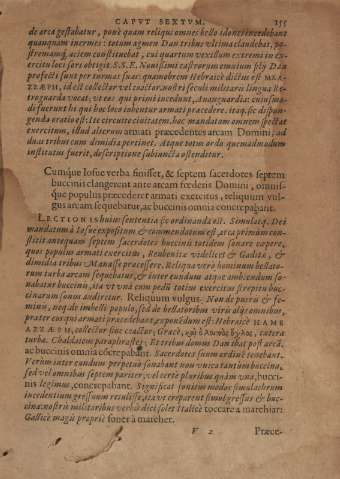 CAPVT SEXTVM. 155
de arca gestabatur, ponè quam reliqui omnes bello idonei incedebant
quanquam inermes: totum agmen Dan tribus vltima claudebat, po-
stremamq́; aciem constituebat, cui quartum vexillum extremi in ex-
ercitu loci sors obtigit. S.S.E. Nouissimi castrorum omnium filij Dan
profecti sunt per turmas suas: quamobrem Hebraicè dictus est MEAS-
ZAEPH, id est collector vel coactor. nostri seculi militares lingua Re-
troguarda vocat, vt eos qui primi incedunt, Auanguardia: cuiusmo-
di fuerunt hi qui hoc loco iubentur armati præcedere. itaq́; sic dispon-
genda oratio est: Ite circuite ciuitatem, hoc mandatum omnem spectat
exercitum, illud alterum armati præcedentes arcam Domini, ad
duas tribus cum dimidia pertinet. Atque totum ordo quemadmodum
institutus fuerit, descriptione subiuncta ostenditur.
Cumque Iosue verba finisset, & septem sacerdotes septem
buccinis clangerent ante arcam fœderis Domini, omnis-
que populus præcederet armatus exercitus, reliquum vul-
gus arcam sequebatur, ac buccinis omnia concrepabant.
LECTIONIS huius sententia sic ordinanda est. Simulatq́; Dei
mandatum à Iosue expositum & commendatum est, arca primùm con-
stitit antequam septem sacerdotes buccinis totidem sonare cœpere,
quos populus armati exercitus, Rubenitæ videlicet & Gaditæ, &
dimidia tribus Manasse præcessere. Reliqua vero hominum bellato-
rum turba arcam sequebatur, & inter eundum atque ambeundum so-
nabatur buccinis, ita vt vnà cum pedū totius exercitus strepitu buc-
cinarum sonus audiretur. Reliquum vulgus. Non de pueris & fe-
minis, neq́; de imbelli populo, sed de bellatoribus viris alijs omnibus,
præter eos qui armati præcedebant, exponēdum est: Hebraicè HAMB
AZZAEPH, collectus siue coactus, Græcè, καὶ ὁ λοιπὸς ὄχλος, cætera
turba. Chaldæus paraphrastes, Et tribus domus Dan ibat post arcā.
ac buccinis omnia cōcrepabant. Sacerdotes suum ordinē tenebant.
Verùm inter eundum perpetuò sonabant non vnica tantùm buccina,
sed vel omnibus septem pariter, vel certe pluribus quàm vna, bucci-
nis legimus, concrepabant. Significat sonitus modos simul atque
incedentium gressum retulisse, ita vt creparent simul gressus & buc-
cinæ: nostris militaribus verbis dici solet Italicè toccare a marchiar:
Gallicè magis propriè soner à marcher.
V 2 Præce-